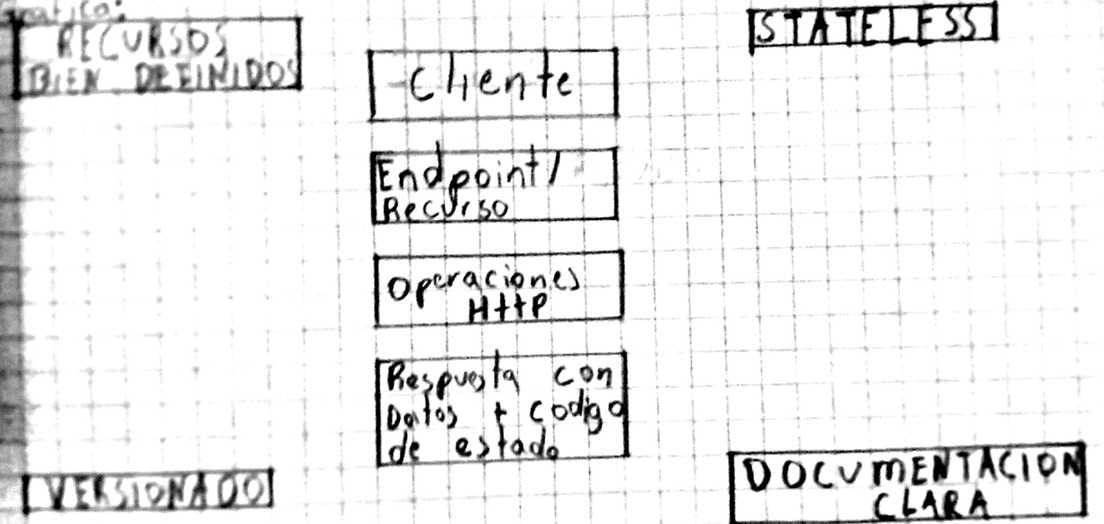 RECURSOS
BIEN DEFINIDOS
STATELESS
Cliente
Endpoint/
Recurso
Operaciones
Http
Respuesta con
Datos + codigo
de estado
VERSIONADO
DOCUMENTACION
CLARA